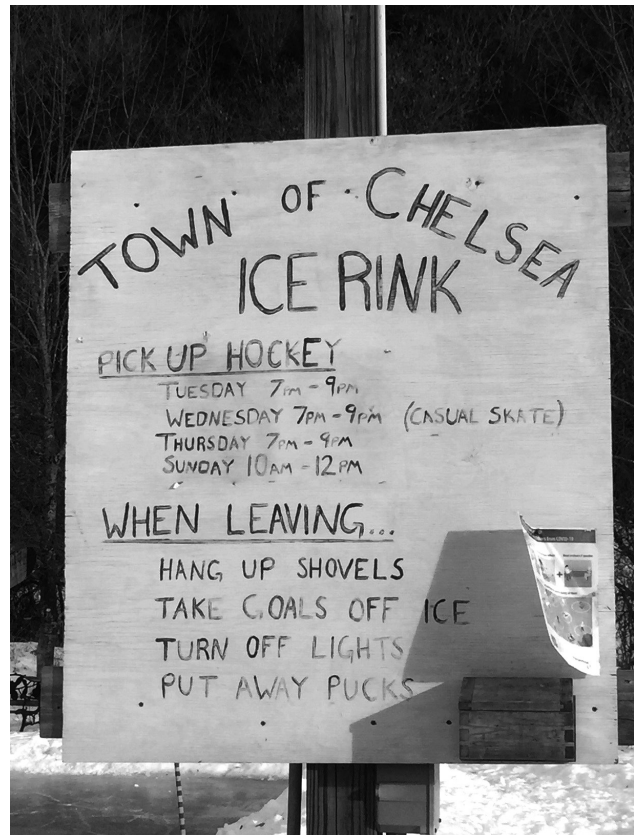 TOWN OF CHELSEA
ICE RINK
PICK UP HOCKEY
TUESDAY 7PM - 9PM
WEDNESDAY 7PM - 9PM (CASUAL SKATE)
THURSDAY 7PM - 9PM
SUNDAY 10AM - 12PM
WHEN LEAVING...
HANG UP SHOVELS
TAKE GOALS OFF ICE
TURN OFF LIGHTS
PUT AWAY PUCKS